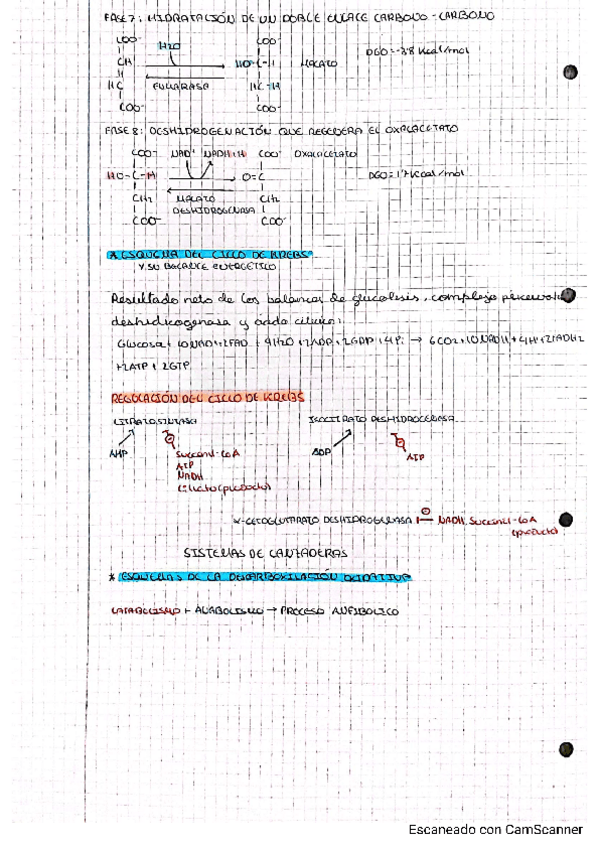 FASE 7: HIDRATACIÓN DE UN DOBLE ENLACE CARBONO-CARBONO
COO- COO-
CH H2O HO-C-H MALATO DGO=-3'8 Kcal/mol
HC FUMARASA HC-H
COO- COO-
FASE 8: DESHIDROGENACIÓN QUE REGENERA EL OXALACETATO
COO- NAD+ NADH+H COO- OXALACETATO
HO-C-H O=C DGO=1'7 Kcal/mol
CH2 MALATO CH2
COO- DESHIDROGENASA COO-
* ESQUEMA DEL CICLO DE KREBS
Y SU BALANCE ENERGÉTICO
Resultado neto de los balances de glucolisis, complejo piruvato
deshidrogenasa y ácido cítrico:
Glucosa + 10NAD + 2FAD + 4H2O + 2ADP + 2GDP + 4Pi → 6CO2 + 10NADH + 4H + 2FADH2
+2ATP + 2GTP
REGULACIÓN DEL CICLO DE KREBS
CITRATO SINTASA ISOCITRATO DESHIDROGENASA
AMP Succinil-CoA ADP ATP
ATP
NADH
Citrato (producto)
α-CETOGLUTARATO DESHIDROGENASA NADH, Succinil-CoA
(producto)
SISTEMAS DE LANZADERAS
* ESQUEMAS DE LA DESCARBOXILACIÓN OXIDATIVA
CATABOLISMO + ANABOLISMO → PROCESO ANFIBÓLICO
Escaneado con CamScanner